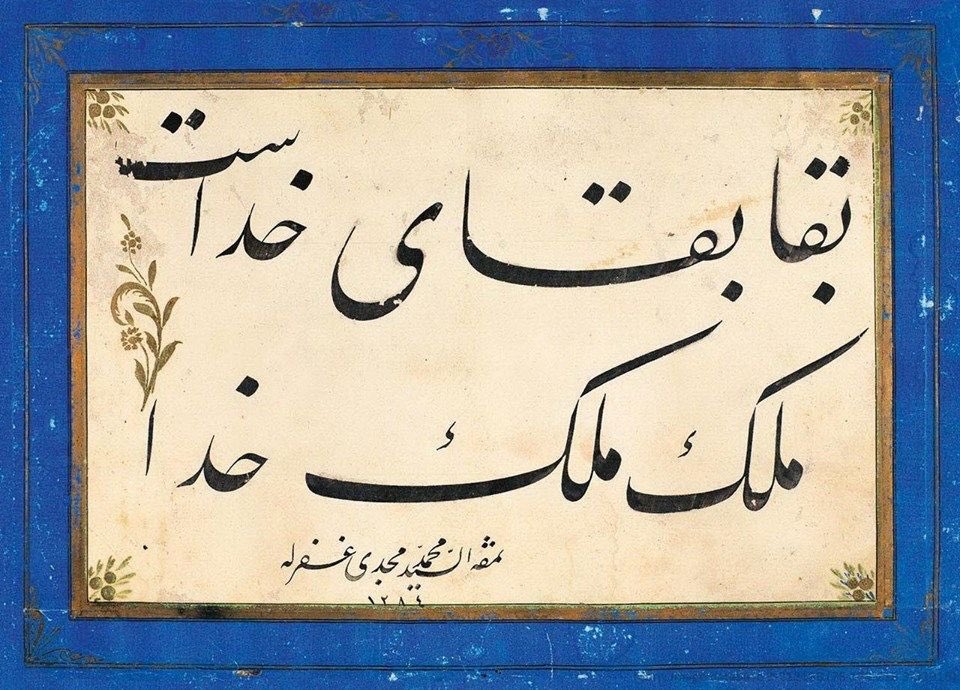 بقا بقای خداست
ملک ملک خدا
نمقه السید محمد مجدی غفر له
١٢٨٤